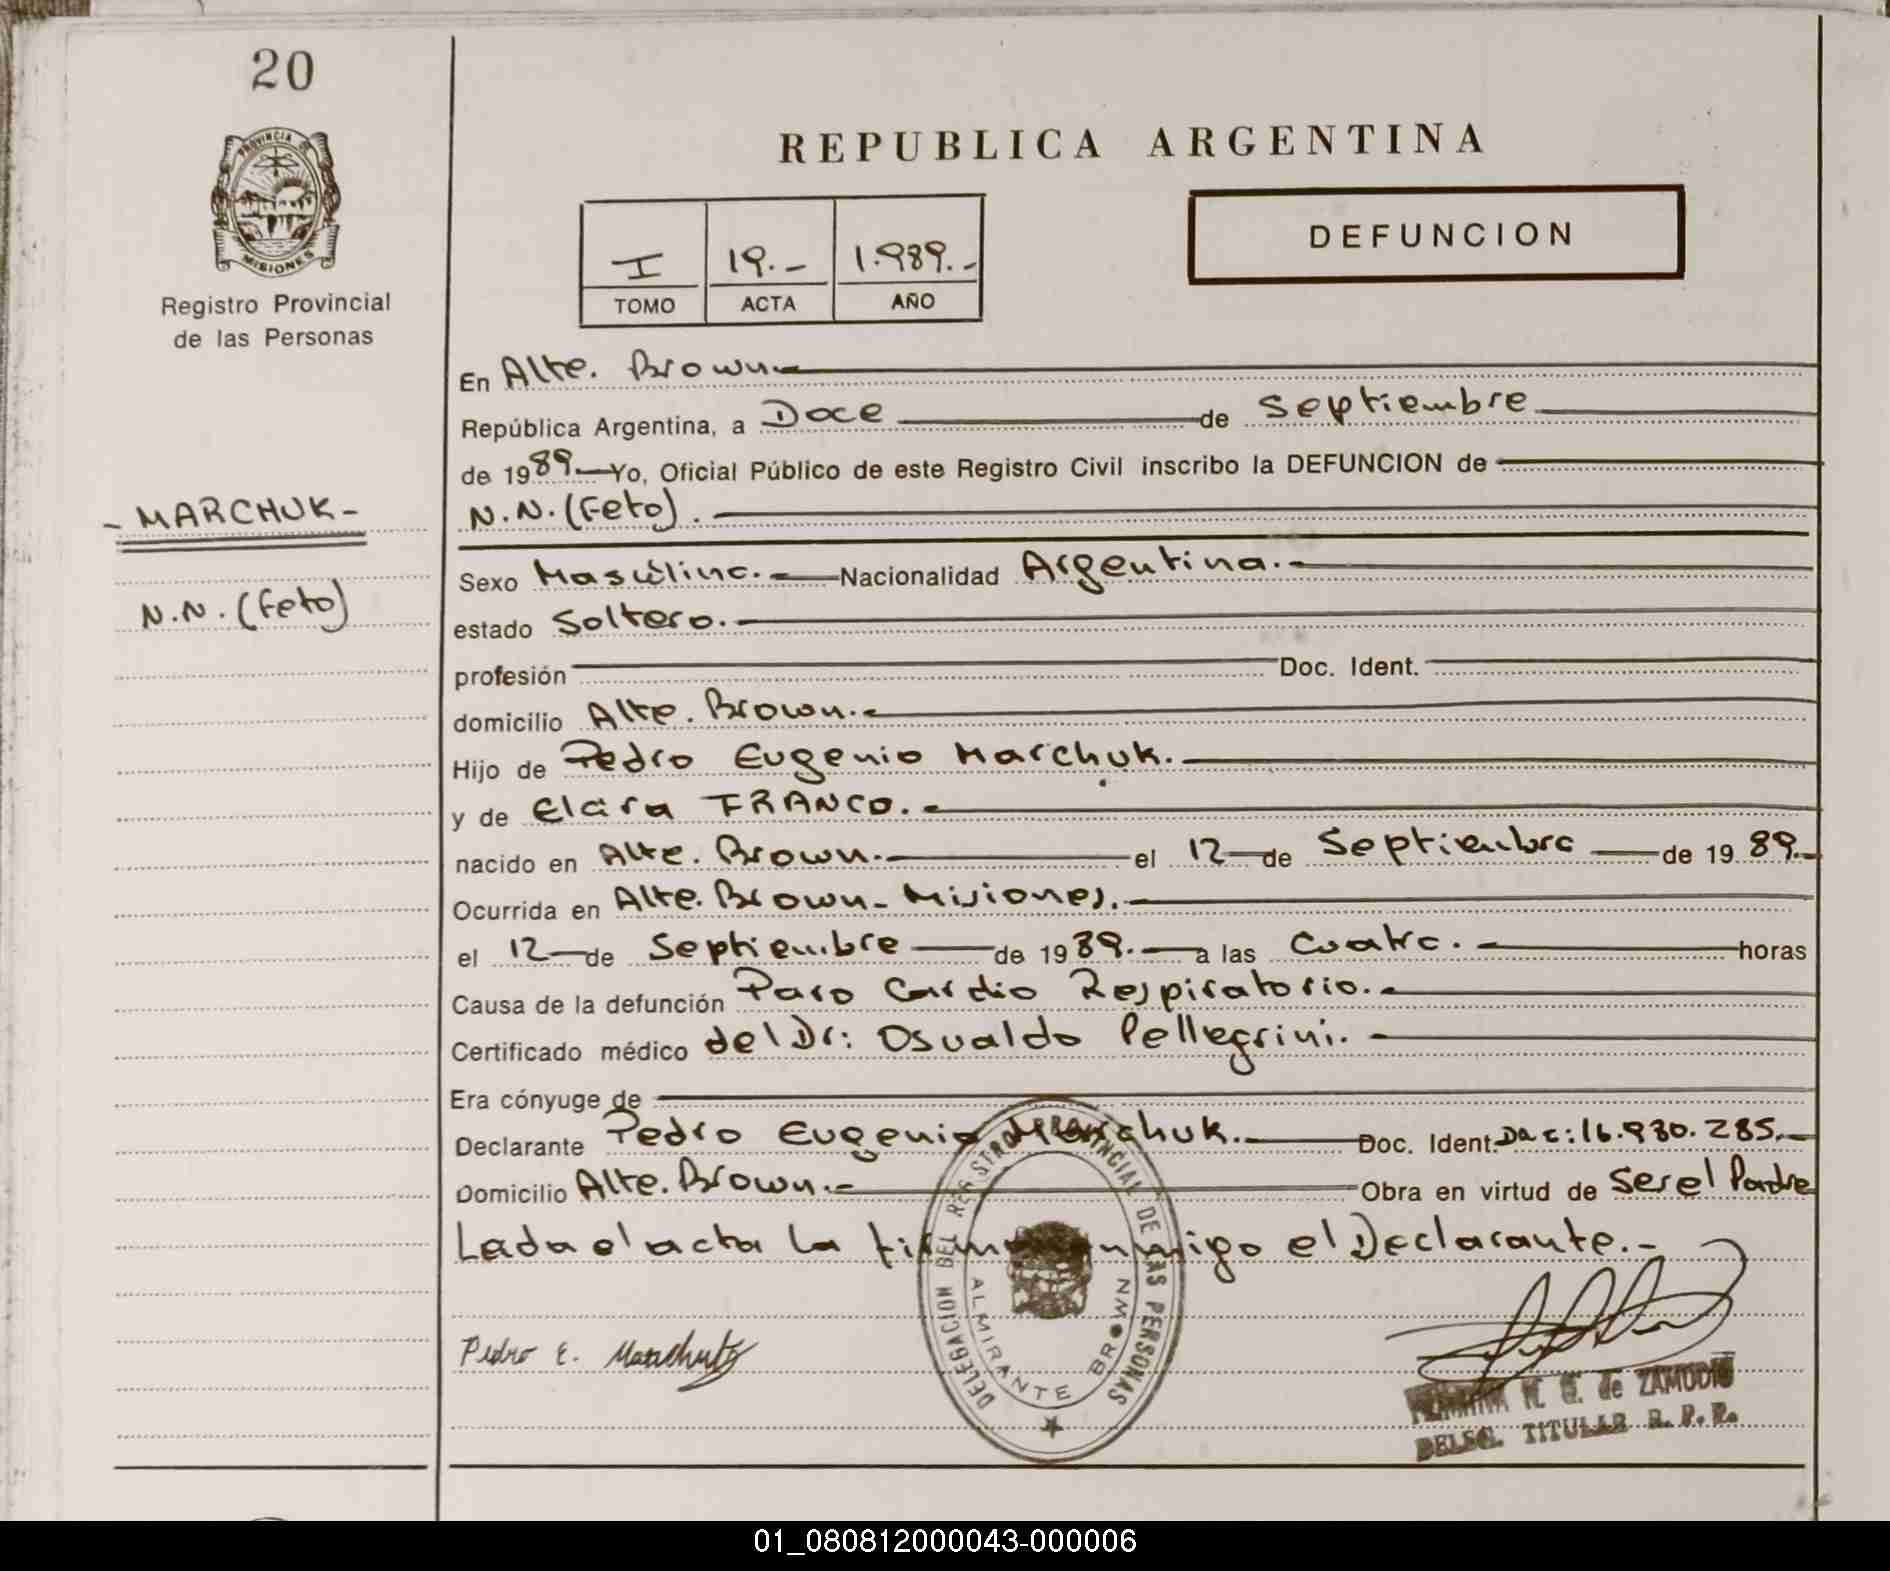 20
PROVINCIA DE
MISIONES
Registro Provincial
de las Personas
REPUBLICA ARGENTINA
I 19.- 1.989.-
TOMO ACTA AÑO
DEFUNCION
En Alte. Brown.
República Argentina, a Doce de Septiembre
de 1989. Yo, Oficial Público de este Registro Civil inscribo la DEFUNCION de
- MARCHUK -
N.N. (Feto).
Sexo Masculino. Nacionalidad Argentina.
N.N. (Feto)
estado Soltero.
profesión Doc. Ident.
domicilio Alte. Brown.
Hijo de Pedro Eugenio Marchuk.
y de Clara FRANCO.
nacido en Alte. Brown. el 12 de Septiembre de 1989.
Ocurrida en Alte. Brown - Misiones.
el 12 de Septiembre de 1989. a las Cuatro. horas
Causa de la defunción Paro Cardio Respiratorio.
Certificado médico del Dr: Osvaldo Pellegrini.
Era cónyuge de
Declarante Pedro Eugenio Marchuk. Doc. Ident. 16.930.285.
Domicilio Alte. Brown. Obra en virtud de Ser el Padre
Leida el acta la firma conmigo el Declarante.-
DELEGACION DEL REGISTRO PROVINCIAL DE LAS PERSONAS
ALMIRANTE BROWN
Pedro E. Marchuk
N. G. de ZAMUDIO
DELEG. TITULAR R. P. P.
01_080812000043-000006